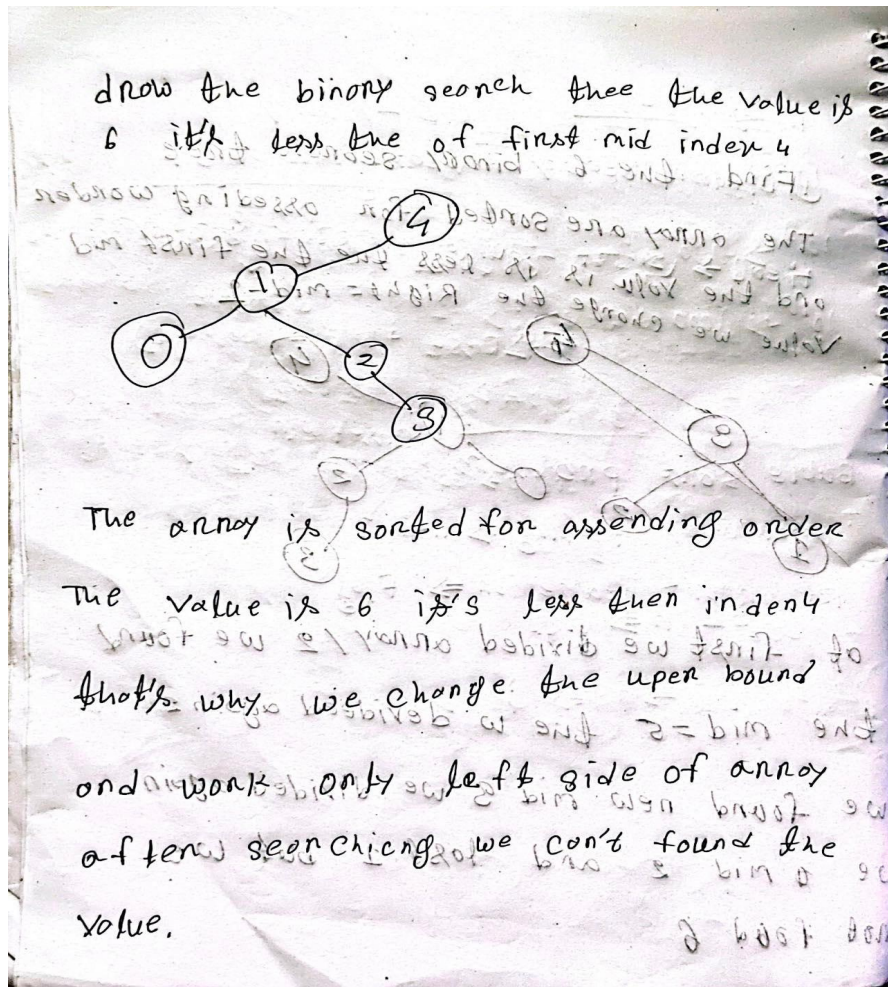 drow the binory seorch thee the value is
6 it's less the of first mid index 4
4
1
0
2
3
The arroy is sorted for assending order
The value is 6 it's less then inden4
thot's why we chonge the upen bound
ond work only left side of arroy
aften seorchicng we con't found the
volue.